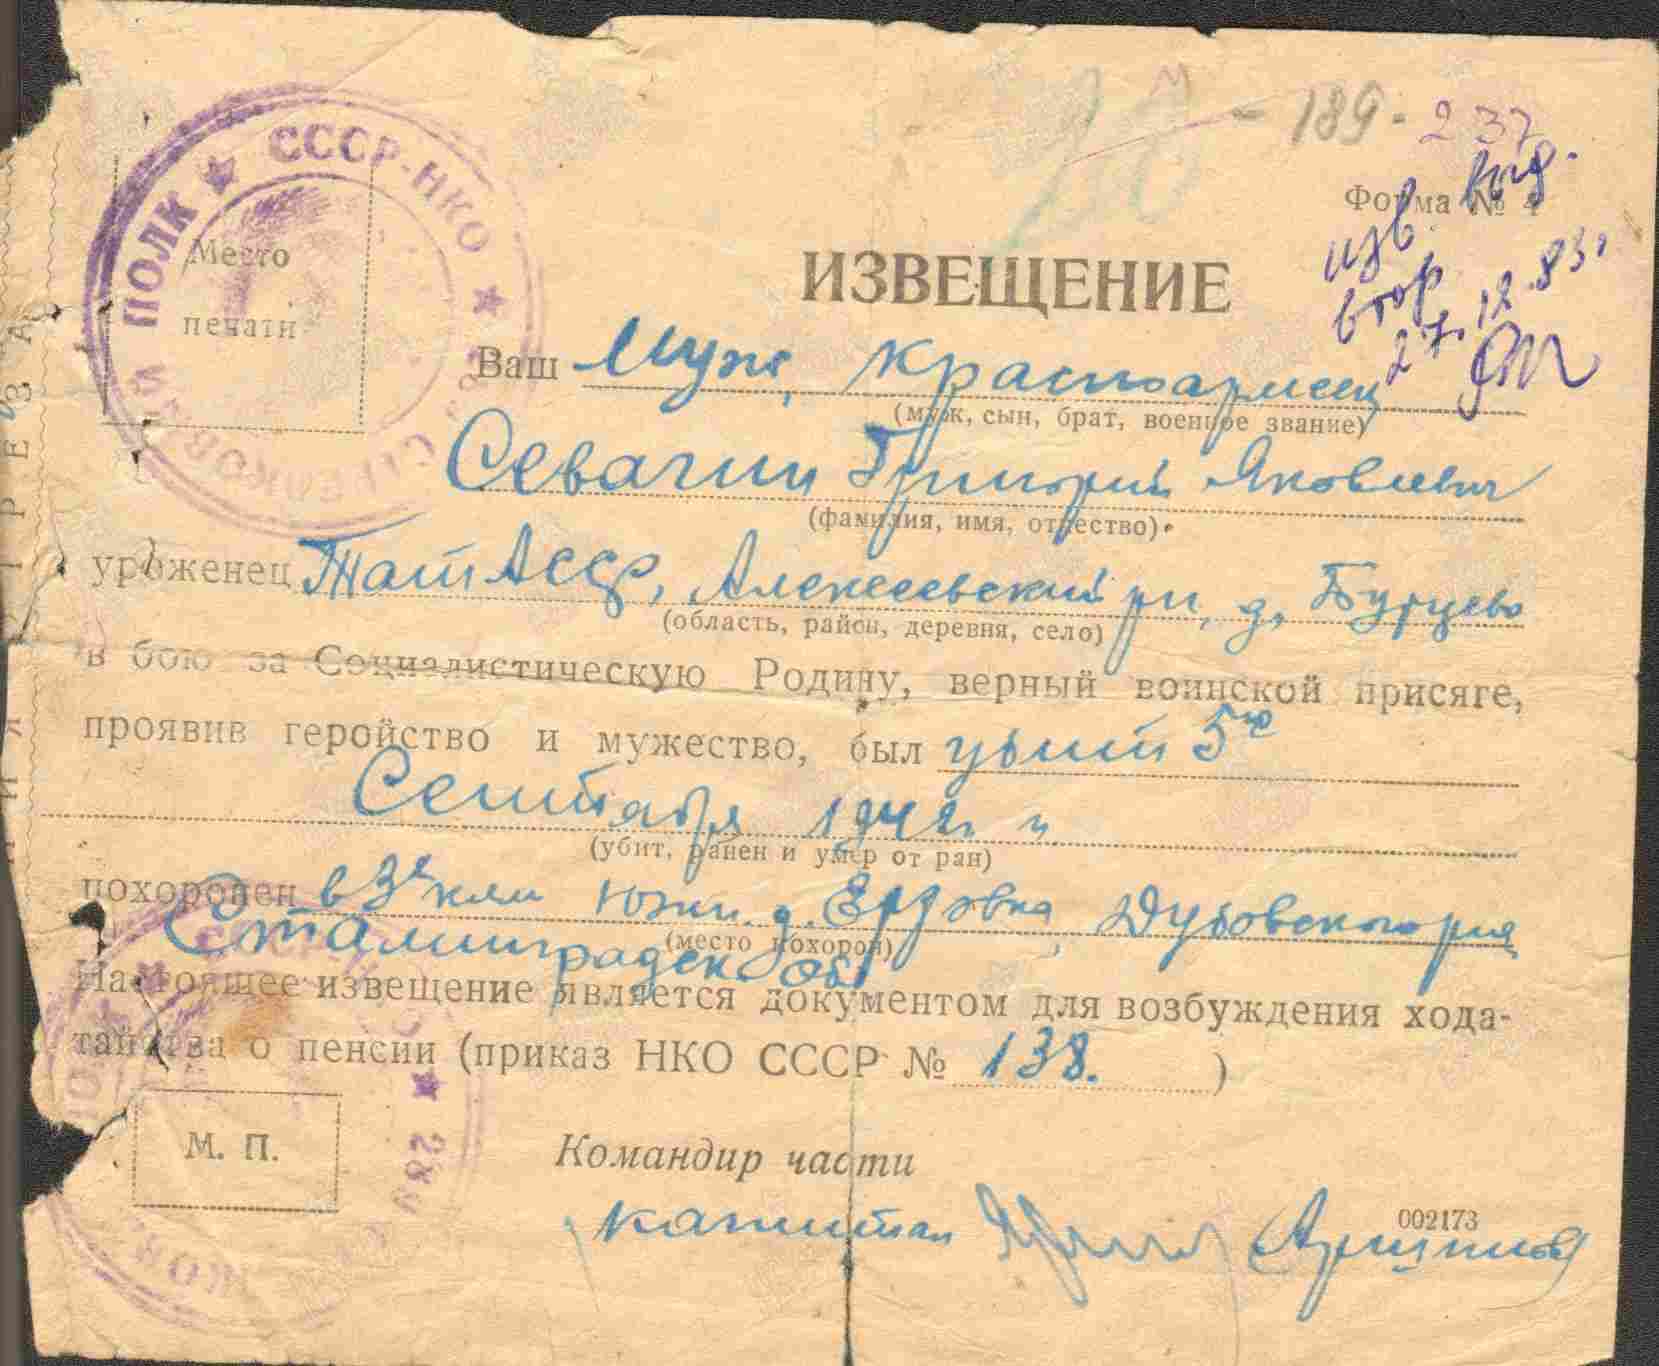 - 189 - 237
Форма № 4
изв. выд.
втор
27.12.83г
СССР-НКО
ПОЛК
Место
печати
ИЗВЕЩЕНИЕ
Ваш муж, красноармеец
(муж, сын, брат, военное звание)
Севагин Григорий Яковлевич
(фамилия, имя, отчество).
уроженец ТатАССР, Алексеевский рн, д. Бутцево
(область, район, деревня, село)
в бою за Социалистическую Родину, верный воинской присяге,
проявив геройство и мужество, был убит 5го
Сентября 1942г. и
(убит, ранен и умер от ран)
похоронен в 3х клм южн. д. Ерзовка, Дубовского р-на
(место похорон)
Сталинградск. обл
Настоящее извещение является документом для возбуждения хода-
тайства о пенсии (приказ НКО СССР № 138. )
М. П.
Командир части
капитан
002173